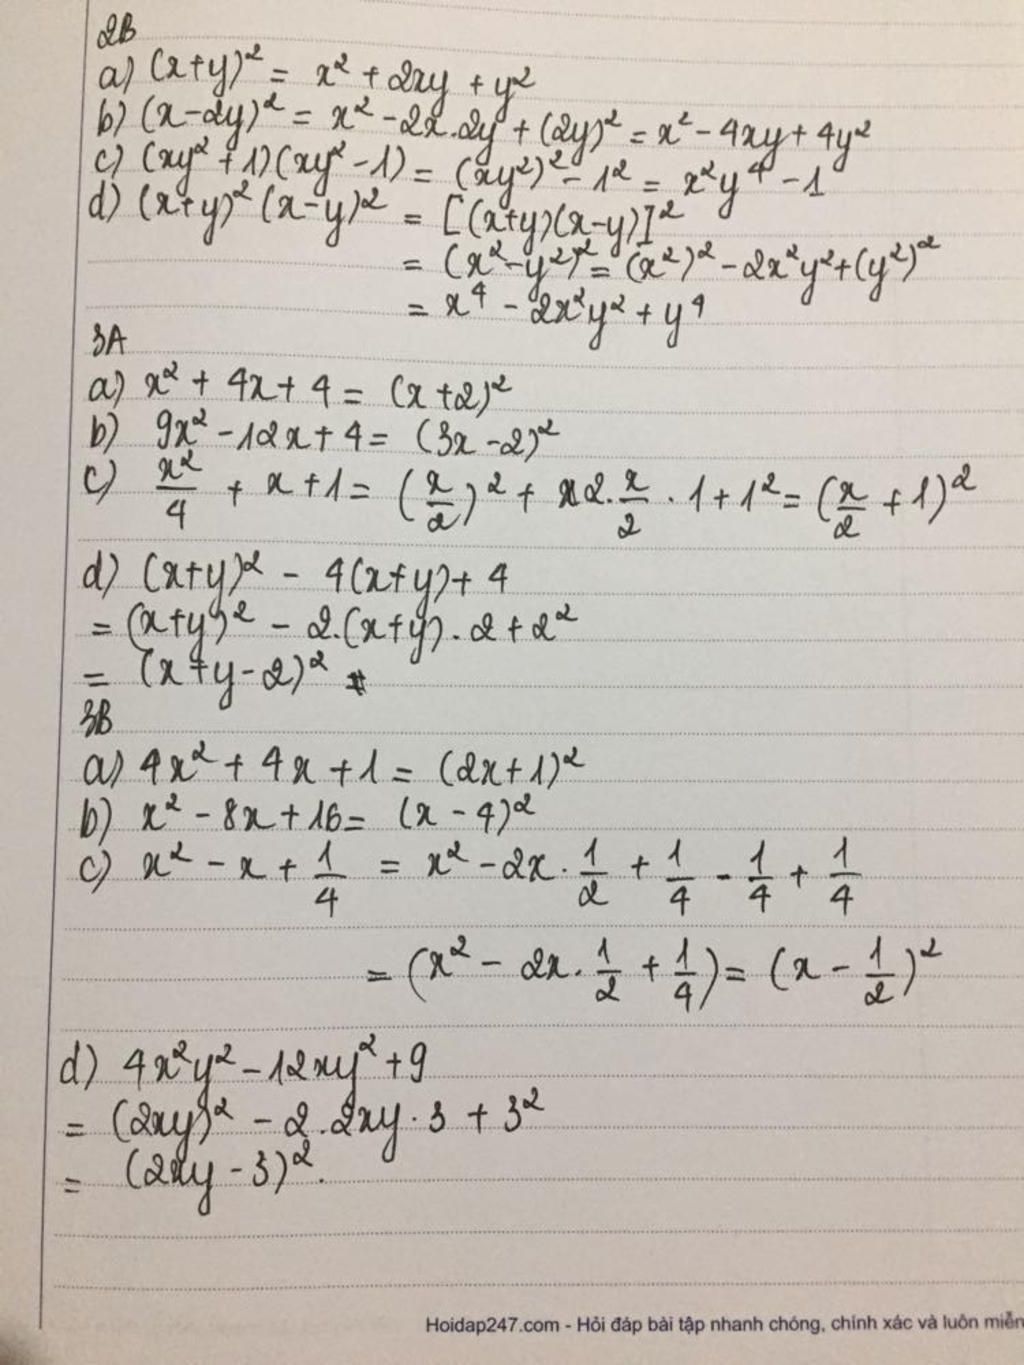 2B
a) (x+y)² = x² + 2xy + y²
b) (x-2y)² = x² - 2x.2y + (2y)² = x² - 4xy + 4y²
c) (xy² + 1)(xy² - 1) = (xy²)² - 1² = x²y⁴ - 1
d) (x+y)² (x-y)² = [(x+y)(x-y)]²
= (x² - y²)² = (x²)² - 2x²y² + (y²)²
= x⁴ - 2x²y² + y⁴
3A
a) x² + 4x + 4 = (x+2)²
b) 9x² - 12x + 4 = (3x - 2)²
c) x²/4 + x + 1 = (x/2)² + 2. x/2 . 1 + 1² = (x/2 + 1)²
d) (x+y)² - 4(x+y) + 4
= (x+y)² - 2.(x+y). 2 + 2²
= (x+y-2)²
3B
a) 4x² + 4x + 1 = (2x+1)²
b) x² - 8x + 16 = (x - 4)²
c) x² - x + 1/4 = x² - 2x. 1/2 + 1/4 - 1/4 + 1/4
= (x² - 2x. 1/2 + 1/4) = (x - 1/2)²
d) 4x²y² - 12xy² + 9
= (2xy)² - 2.2xy.3 + 3²
= (2xy - 3)².
Hoidap247.com - Hỏi đáp bài tập nhanh chóng, chính xác và luôn miễn